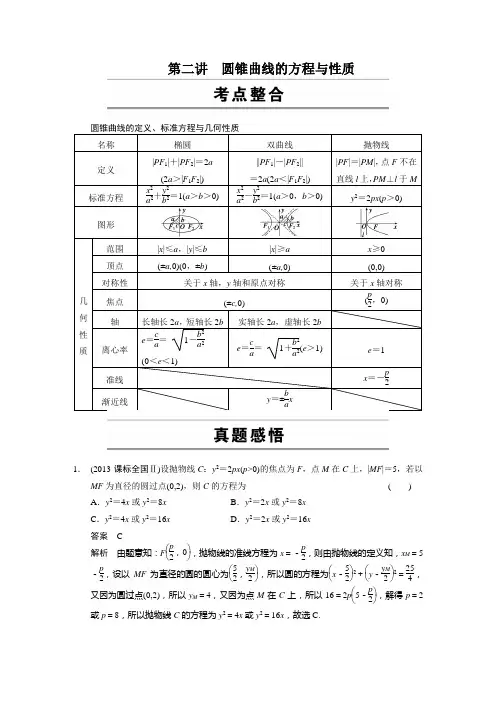 第二讲 圆锥曲线的方程与性质
考点整合
圆锥曲线的定义、标准方程与几何性质
名称 椭圆 双曲线 抛物线
定义 |PF₁|+|PF₂|=2a (2a>|F₁F₂|) ||PF₁|-|PF₂||=2a(2a<|F₁F₂|) |PF|=|PM|,点F不在直线l上,PM⊥l于M
标准方程 x²/a²+y²/b²=1(a>b>0) x²/a²-y²/b²=1(a>0,b>0) y²=2px(p>0)
图形
几何性质
范围 |x|≤a,|y|≤b |x|≥a x≥0
顶点 (±a,0)(0,±b) (±a,0) (0,0)
对称性 关于x轴,y轴和原点对称 关于x轴对称
焦点 (±c,0) (p/2,0)
轴 长轴长2a,短轴长2b 实轴长2a,虚轴长2b
离心率 e=c/a=√(1-b²/a²) (0<e<1) e=c/a=√(1+b²/a²)(e>1) e=1
准线 x=-p/2
渐近线 y=±b/a x
真题感悟
1. (2013·课标全国Ⅱ)设抛物线C:y²=2px(p>0)的焦点为F,点M在C上,|MF|=5,若以
MF为直径的圆过点(0,2),则C的方程为 ( )
A.y²=4x或y²=8x B.y²=2x或y²=8x
C.y²=4x或y²=16x D.y²=2x或y²=16x
答案 C
解析 由题意知:F(p/2,0),抛物线的准线方程为x=-p/2,则由抛物线的定义知,xM=5
-p/2,设以MF为直径的圆的圆心为(5/2,yM/2),所以圆的方程为(x-5/2)²+(y-yM/2)²=25/4,
又因为圆过点(0,2),所以yM=4,又因为点M在C上,所以16=2p(5-p/2),解得p=2
或p=8,所以抛物线C的方程为y²=4x或y²=16x,故选C.